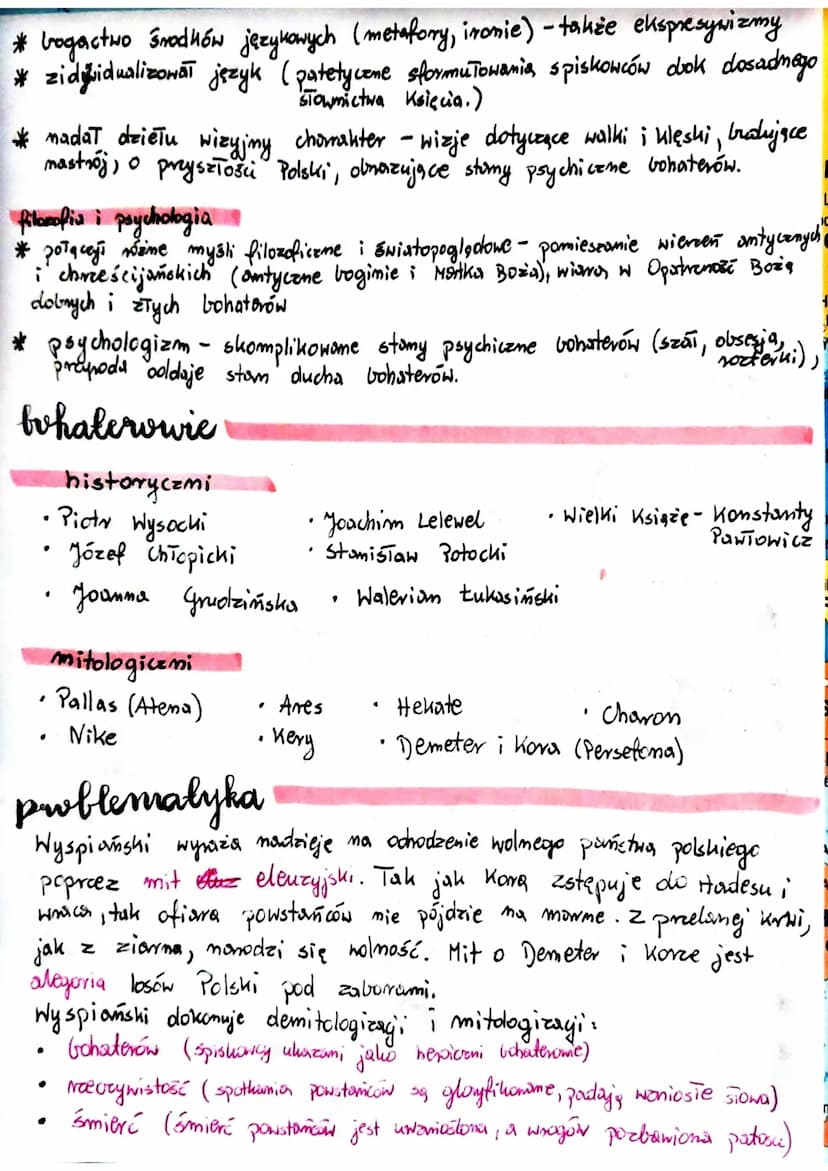 * bogactwo środków językowych (metafory, ironie) - także ekspresywizmy
* zidywidualizował język (patetyczne sformułowania spiskowców obok dosadnego
słownictwa Księcia.)
* nadał dziełu wizyjny charakter - wizje dotyczące walki i klęski, budujące
nastrój, o przyszłości Polski, obnażujące stany psychiczne bohaterów.
filozofia i psychologia
* połączył różne myśli filozoficzne i światopoglądowe - pomieszanie wierzeń antycznych
i chrześcijańskich (antyczne boginie i Matka Boża), wiara w Opatrzność Bożą
dobrych i złych bohaterów
* psychologizm - skomplikowane stany psychiczne bohaterów (szał, obsesja,
rozterki),
przyroda oddaje stan ducha bohaterów.
bohaterowie
historyczni
· Piotr Wysocki · Joachim Lelewel · Wielki Książe - Konstanty
Pawłowicz
· Józef Chłopicki · Stanisław Potocki
· Joanna Grudzińska · Walerian Łukasiński
mitologiczni
· Pallas (Atena) · Ares · Hekate · Charon
· Nike · Kery · Demeter i Kora (Persefona)
problematyka
Wyspiański wyraża nadzieję na odrodzenie wolnego państwa polskiego
poprzez mit eleuzyjski. Tak jak Kora zstępuje do Hadesu i
wraca, tak ofiara powstańców nie pójdzie na marne. Z przelanej krwi,
jak z ziarna, narodzi się wolność. Mit o Demeter i Korze jest
alegorią losów Polski pod zaborami.
Wyspiański dokonuje demitologizacji i mitologizacji:
· bohaterów (spiskowcy ukazani jako heroiczni bohaterowie)
· rzeczywistość (spotkania powstańców są gloryfikowane, padają wzniosłe słowa)
· śmierć (śmierć powstańców jest uwznioślona, a wrogów pozbawiona patosu)